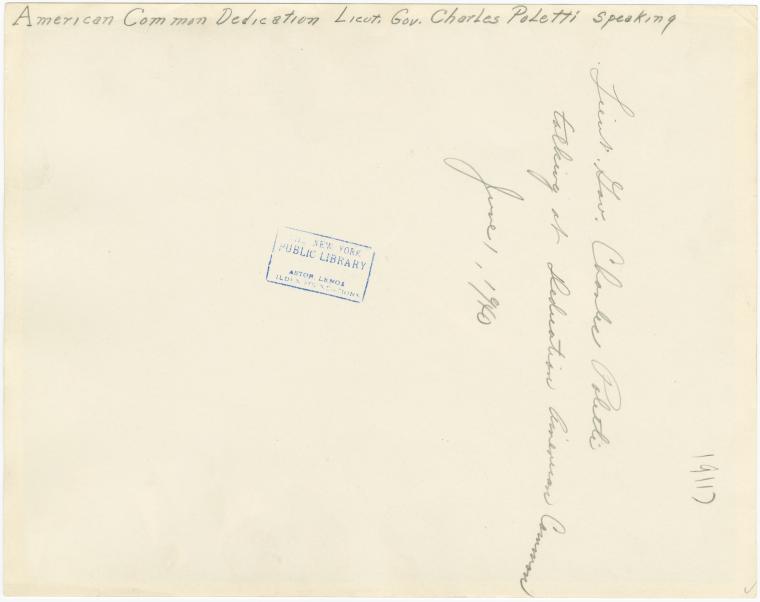 American Common Dedication Lieut. Gov. Charles Poletti speaking
Lieut. Gov. Charles Poletti
talking at Dedication American Common
June 1, 1940
NEW YORK
PUBLIC LIBRARY
ASTOR, LENOX
TILDEN FOUNDATIONS